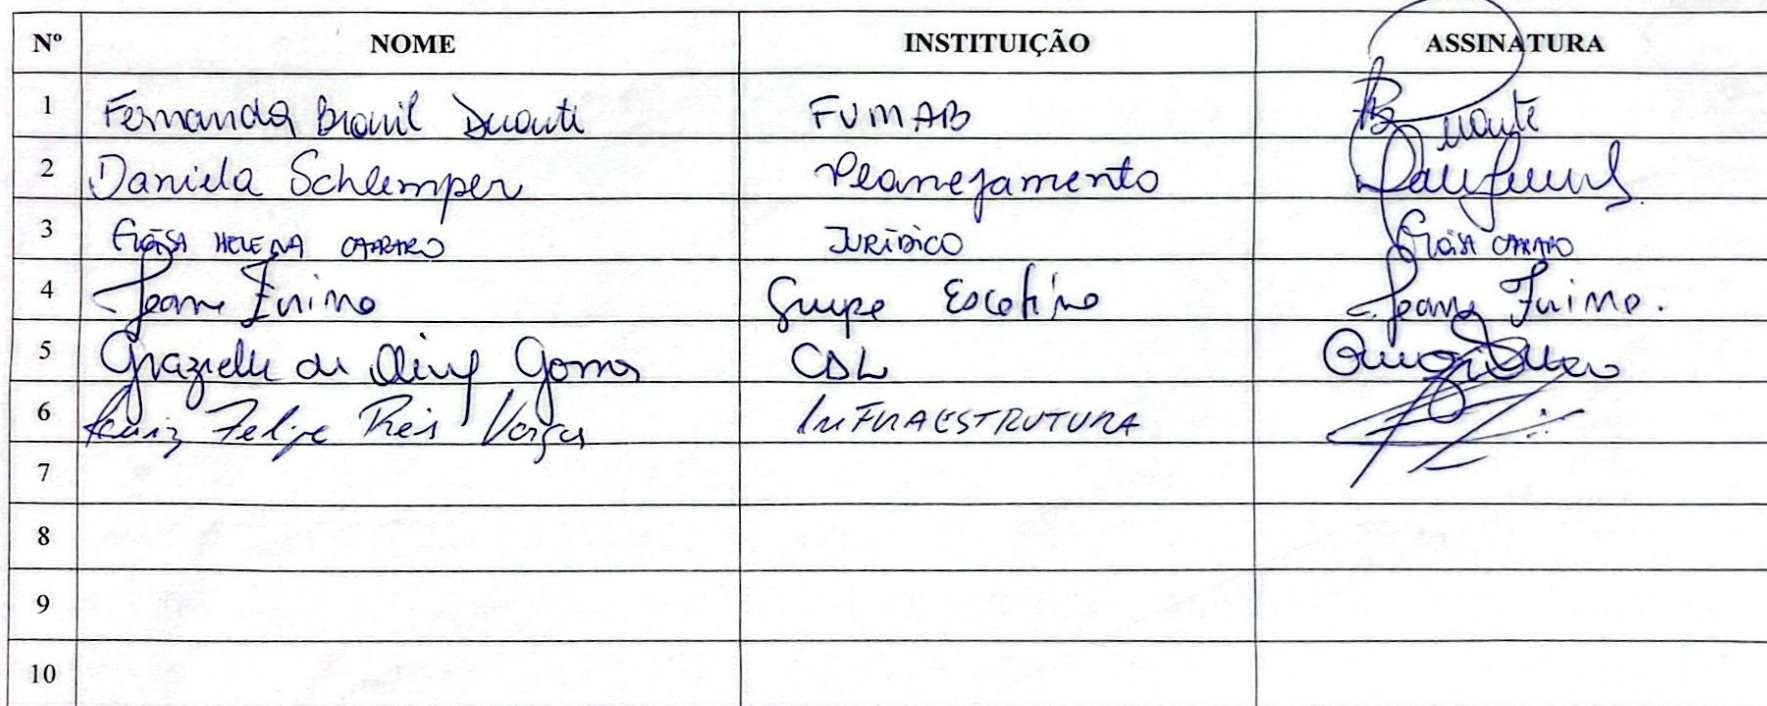 Nº NOME INSTITUIÇÃO ASSINATURA
1 Fernanda Brasil Duarte FUMAB Duarte
2 Daniela Schlemper Planejamento
3 Eloisa HELENA CAPARRO JURÍDICO Eloisa
4 Jeane Grupo Escoteiro Jeane
5 Grazielle de Gomes CDL
6 Luiz Felipe Reis Vargas INFRAESTRUTURA
7
8
9
10